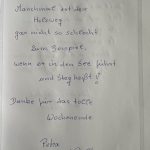 Manchmal ist der
Holzweg
gar nicht so schlecht
Zum Beispiel,
wenn er in den See führt
und Steg heißt!
Danke für das tolle
Wochenende